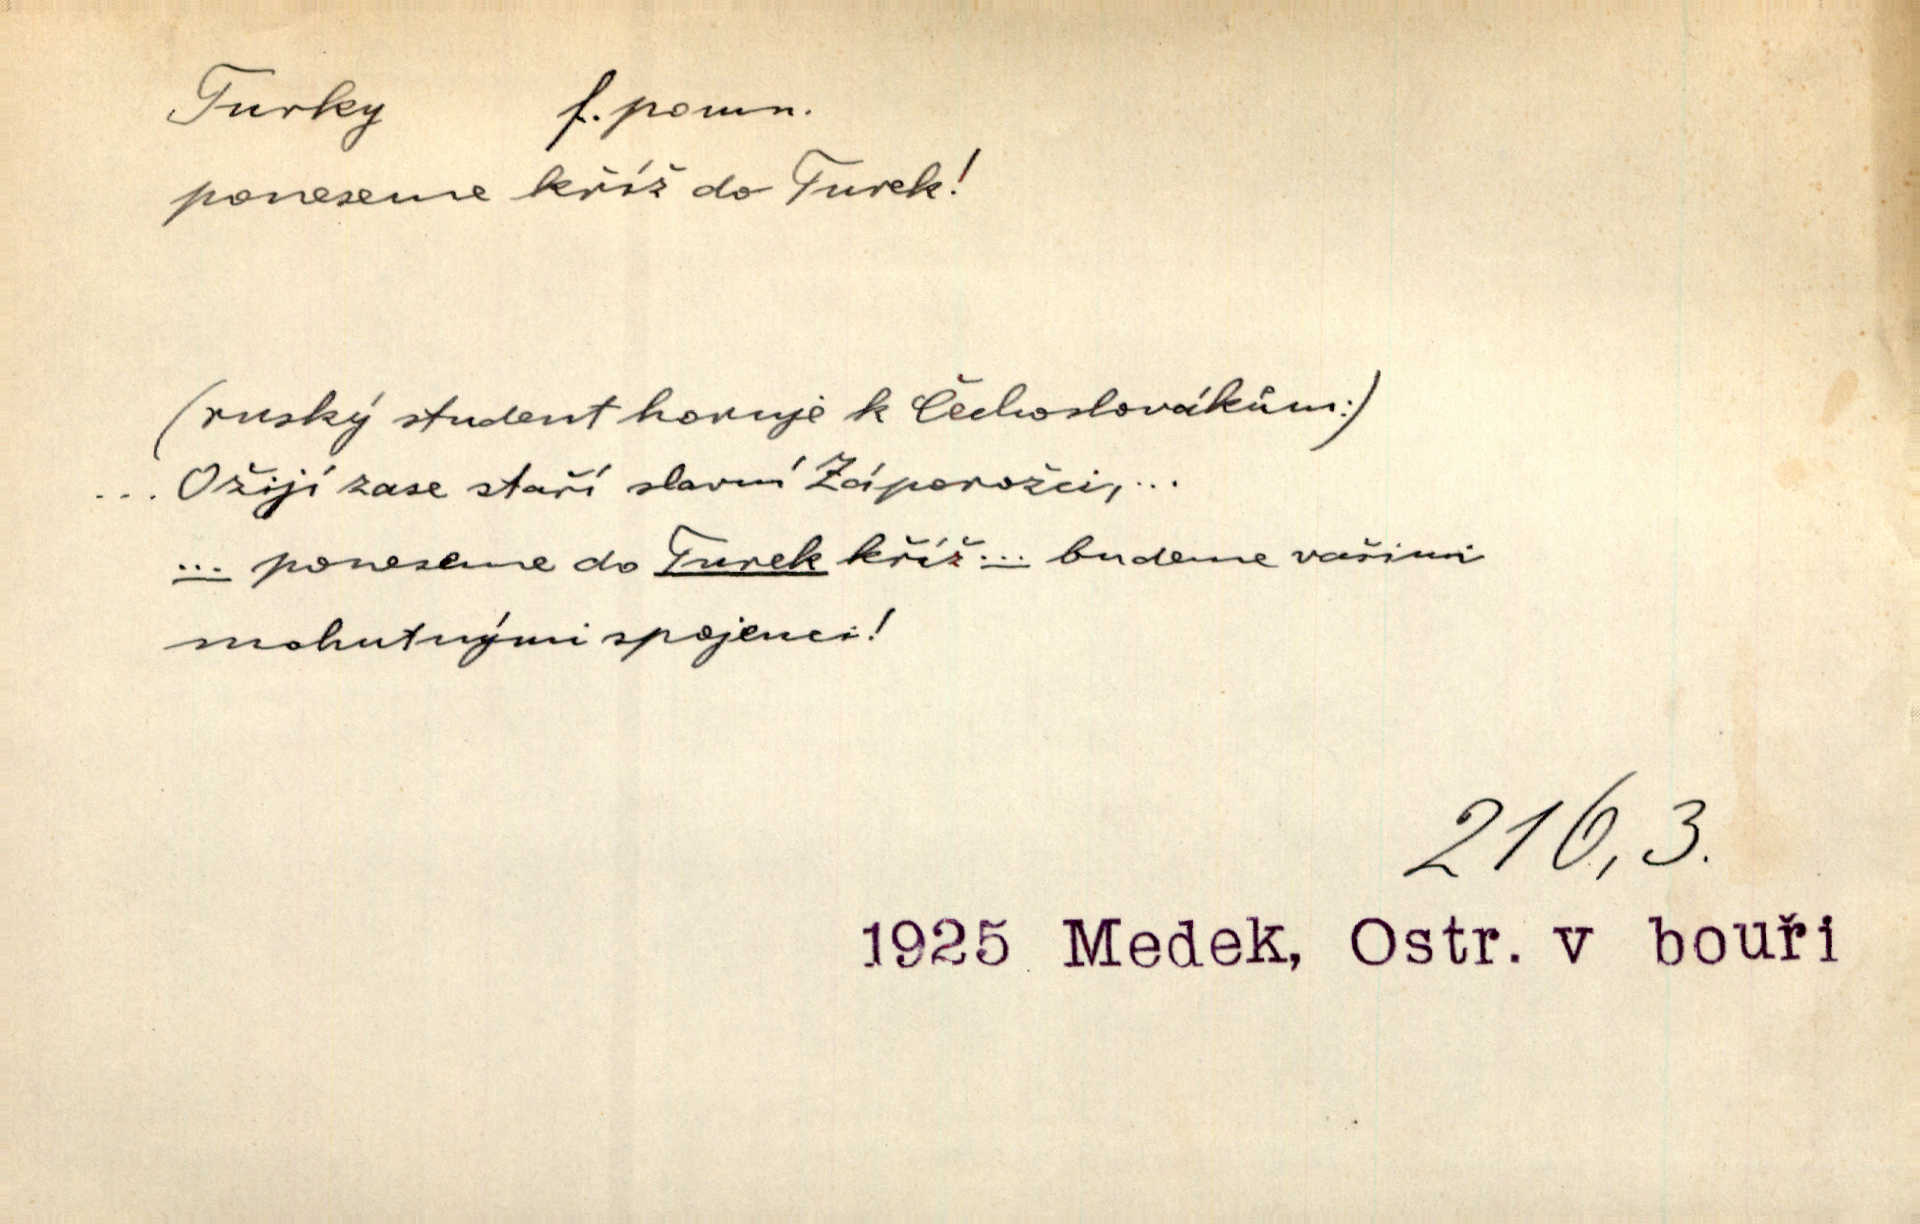 Turky f. pomn.
poneseme kříž do Turek!
(ruský student horuje k Čechoslovákům:)
... Ožijí zase staří slavní Záporožci, ...
... poneseme do Turek kříž ... budeme vašimi
mohutnými spojenci!
216, 3.
1925 Medek, Ostr. v bouři